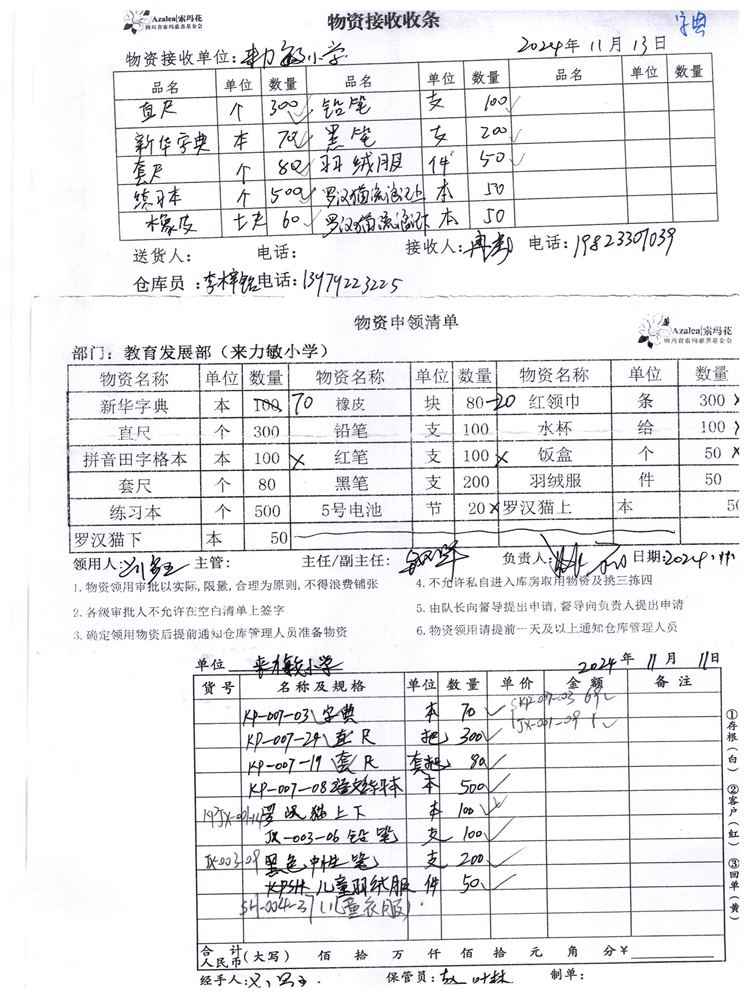 Azalea|索玛花
四川省索玛慈善基金会
物资接收收条
字典
物资接收单位:来力敏小学
2024年11月13日
品名 单位 数量 品名 单位 数量 品名 单位 数量
直尺 个 300 铅笔 支 100
新华字典 本 70 黑笔 支 200
套尺 个 80 羽绒服 件 50
练习本 个 500 罗汉猫流浪记上 本 50
橡皮 块 60 罗汉猫流浪记下 本 50
送货人: 电话: 接收人: 电话:19823307039
仓库员:李梓铭电话:13979223225
物资申领清单
Azalea|索玛花
四川省索玛慈善基金会
部门:教育发展部(来力敏小学)
物资名称 单位 数量 物资名称 单位 数量 物资名称 单位 数量
新华字典 本 100 70 橡皮 块 80-20 红领巾 条 300 ×
直尺 个 300 铅笔 支 100 水杯 给 100 ×
拼音田字格本 本 100 × 红笔 支 100 × 饭盒 个 50 ×
套尺 个 80 黑笔 支 200 羽绒服 件 50
练习本 个 500 5号电池 节 20 × 罗汉猫上 本 50
罗汉猫下 本 50
领用人: 主管: 主任/副主任: 负责人: 日期:2024.11.
1.物资领用审批以实际,限量,合理为原则,不得浪费铺张
4.不允许私自进入库房取用物资及挑三拣四
2.各级审批人不允许在空白清单上签字
5.由队长向督导提出申请,督导向负责人提出申请
3.确定领用物资后提前通知仓库管理人员准备物资
6.物资领用请提前一天及以上通知仓库管理人员
单位 来力敏小学 2024年11月11日
货号 名称及规格 单位 数量 单价 金额 备注
KP-007-03 字典 本 70 KP-007-03 69
JX-001-09 1
KP-007-24 直尺 把 300
KP-007-19 套尺 套 80
KP-007-08 语文练习本 本 500
罗汉猫上下 本 100
JX-003-06 铅笔 支 100
JX-003-09 黑色中性笔 支 200
KPSH 儿童羽绒服 件 50
SH-004-37(儿童衣服)
合计人民币(大写) 佰 拾 万 仟 佰 拾 元 角 分¥
经手人: 保管员: 制单:
①存根(白) ②客户(红) ③回单(黄)